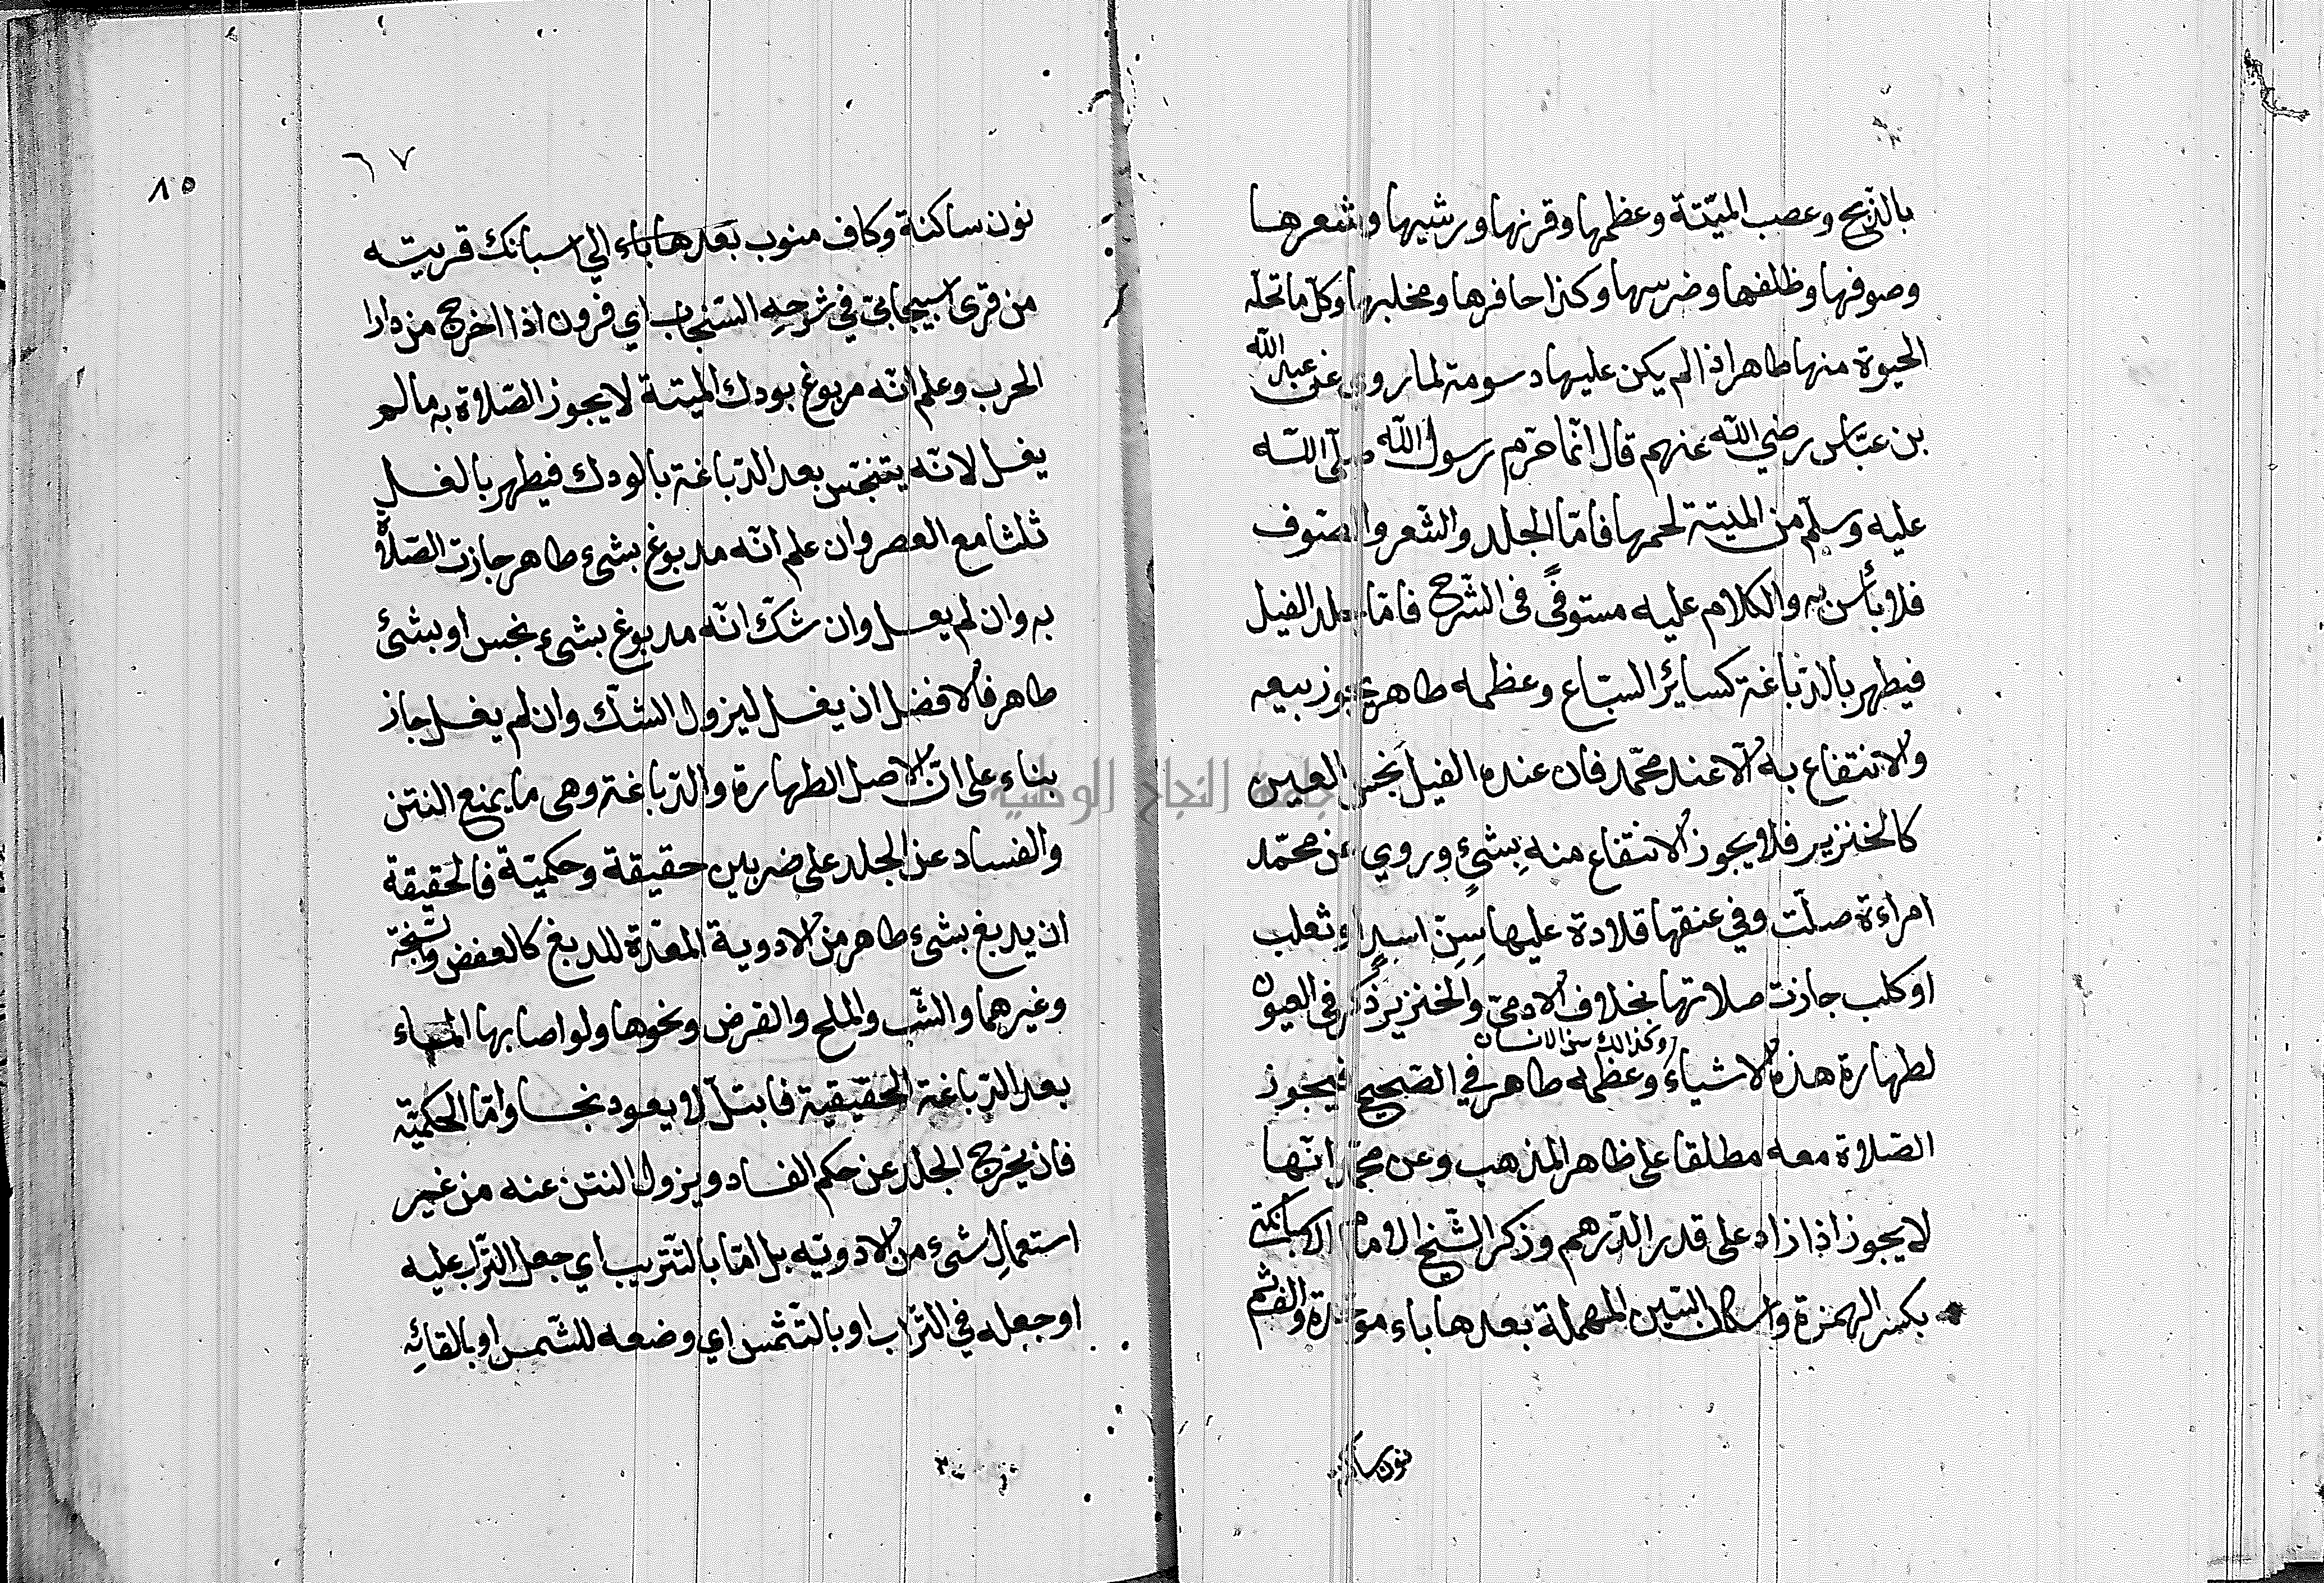 بالذبح وعصب الميّتة وعظمها وقرنها وريشها وشعرها
وصوفها وظلفها وضرسها وكذا حافرها ومخلبها وكلّ ما تحلّه
الحيوة منها طاهر اذا لم يكن عليها دسومة لما روي عن عبد الله
بن عبّاس رضي الله عنهم قال انّما حرم رسول الله صلّى اللّه
عليه وسلّم من الميتة لحمها فامّا الجلد والشّعر والصّوف
فلا بأس به والكلام عليه مستوفًى فى الشّرح فامّا جلد الفيل
فيطهر بالدّباغة كسائر السّباع وعظمه طاهر يجوز بيعه
والانتفاع به الّا عند محمّد فان عنده الفيل نجس العين
كالخنزير فلا يجوز الانتفاع منه بِشئٍ وروي عن محمّد
امراءة صلّت وفي عنقها قلادة عليها سِنّ اسدٍ او ثعلب
او كلب جازت صلاتها بخلاف الادمىّ والخنزير ذكر فى العيون
وكذالك سن الانسان
لطهارة هذه الاشياء وعظمه طاهر في الصّحيح فيجوز
الصّلاة معه مطلقا على ظاهر المذهب وعن محمّد انّها
لا يجوز اذا زاد على قدر الدّرهم وذكر الشّيخ الامام الاسبانكتي
بكسر الهمزة واسكان السّين المهملة بعدها باء موحّدة والف ثم
نون ساكنة
٦٧
٨٥
نون ساكنة وكاف منوب بعدها باء الي اسبانك قريته
من قرى اسبيجابىّ في شرحه السّنجاب اي فرون اذا اخرج من دارا
الحرب وعلم انّه مربوغ بودك الميتة لا يجوز الصّلاة به ما لم
يغسل لانّه يتنجّس بعد الدّباغة بالودك فيطهر بالغسل
ثلثا مع العصر وان علم انّه مدبوغ بشىء طاهر جازت الصّلاة
به وان لم يغسل وان شكّ انّه مدبوغ بشىء نجس او بشئ
طاهر فالافضل ان يغسل ليزول الشّك وان لم يغسل جاز
بناء على انّ الاصل الطهارة والدّباغة وهى ما يمنع النتن
والفساد عن الجلد على ضربين حقيقة وحكميّة فالحقيقة
ان يدبغ بشىء طاهر من الادوية المعدّة للدبغ كالعفص والسّبخة
وغيرهما والشّب والملح والقرض ونحوها ولو اصابها الماء
بعد الدّباغة الحقيقية فابتلّ لا يعود نجسا وامّا الحكميّة
فان يخرج الجلد عن حكم الفساد ويزول النتن عنه من غير
استعمالِ شىء من الادويّه بل امّا بالتّتريب اي جعل التّراب عليه
او جعله في التّراب او بالتّشمس اي وضعه للشّمس او بالقائِه
جامعة النجاح الوطنية